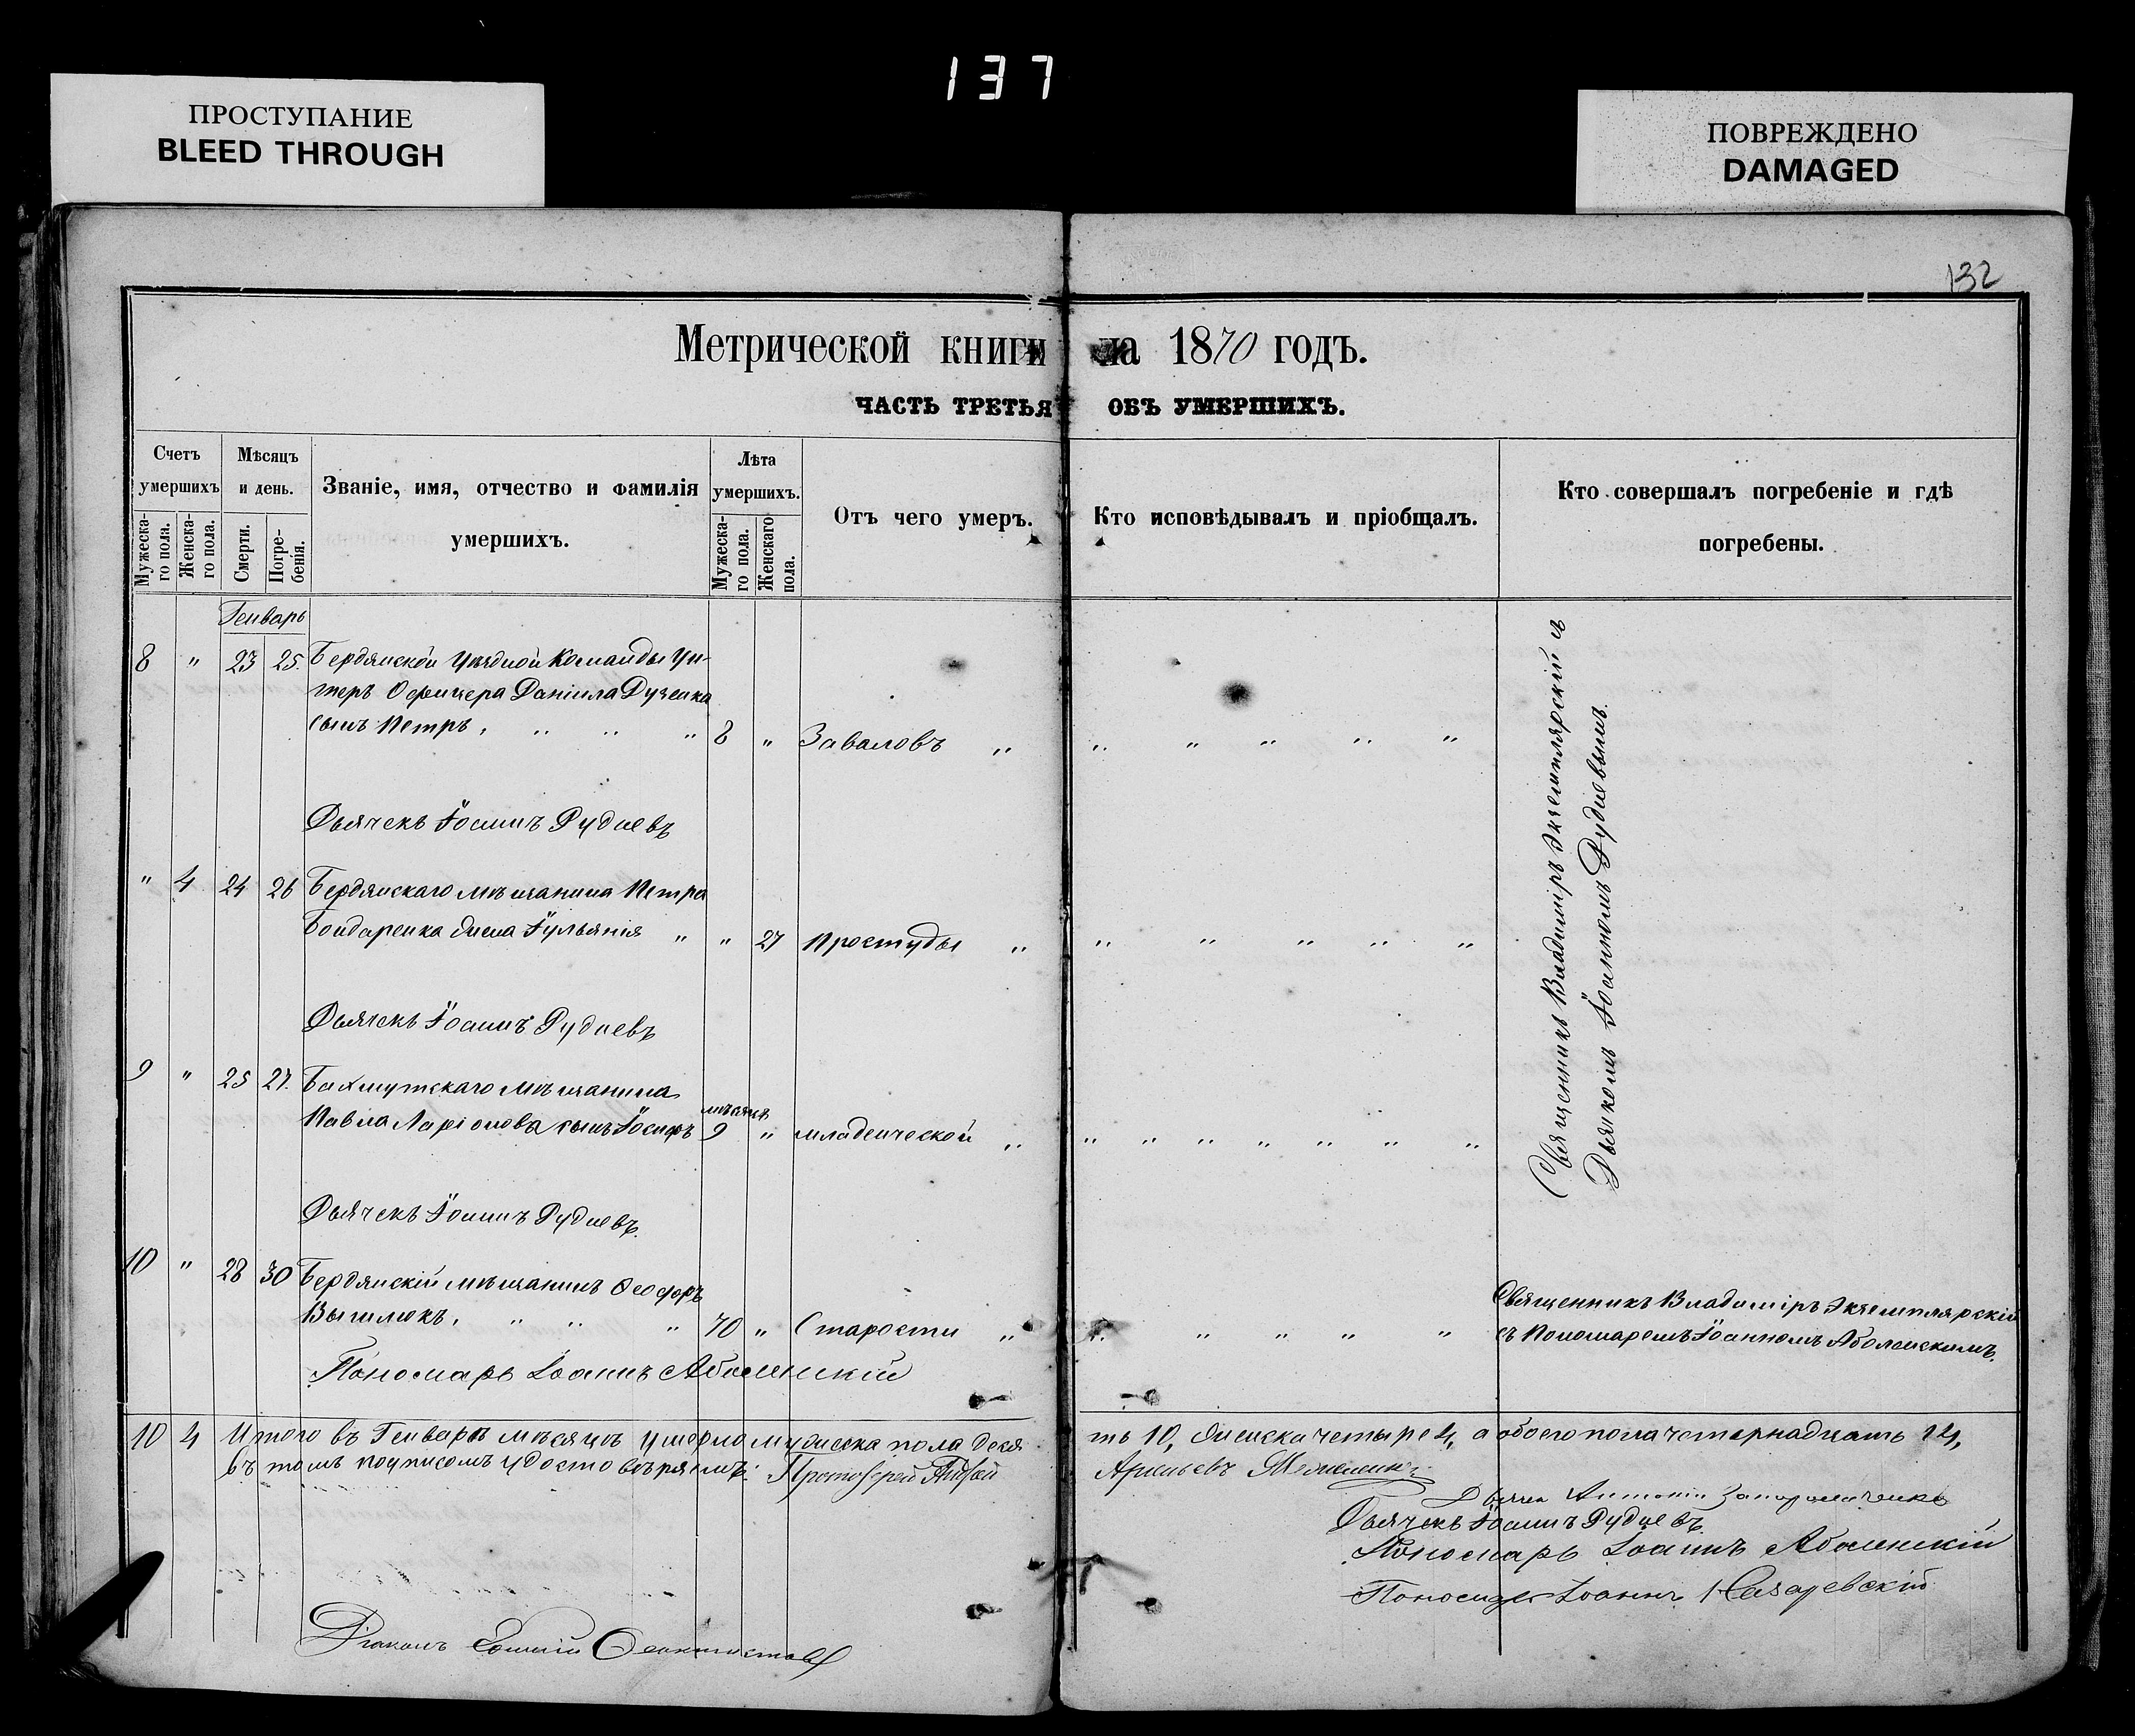 137
ПРОСТУПАНИЕ
BLEED THROUGH
ПОВРЕЖДЕНО
DAMAGED
132
Метрической книги на 1870 годъ.
ЧАСТЬ ТРЕТЬЯ ОБЪ УМЕРШИХЪ.
Счетъ умершихъ
Мужеска-го пола.
Женска-го пола.
Мѣсяцъ и день.
Смерти.
Погре-бенія.
Званіе, имя, отчество и фамилія
умершихъ.
Лѣта умершихъ.
Мужеска-го пола.
Женскаго пола.
Отъ чего умеръ.
Кто исповѣдывалъ и пріобщалъ.
Кто совершалъ погребеніе и гдѣ
погребены.
Генварь
8 " 23 25. Бердянской Уѣздной Команды Ун-
теръ Офицера Даніила Дуженка
сынъ Петръ, " " " 8 " Заваловъ " " " " " "
Дьячекъ Іоаннъ Рудневъ
" 4 24 26 Бердянскаго мѣщанина Петра
Бондаренка жена Іульянія " " 27 Простуды " " " " " "
Дьячекъ Іоаннъ Рудневъ
9 " 25 27. Бахмутскаго мѣщанина
Павла Ларіонова сынъ Іосифъ мѣсяцъ 9 " младенческой " " " " " " " "
Дьячекъ Іоаннъ Рудневъ.
Священникъ Владиміръ Экземплярскій съ
Дьячкомъ Іоанномъ Рудневымъ.
10 " 28 30 Бердянскій мѣщанинъ
" " " 70 " Старости " " " " " "
Священникъ Владиміръ Экземплярскій
съ Пономаремъ Іоанномъ Аболенскимъ.
Пономарь Іоаннъ Аболенскій
10 4 Итого въ Генварѣ мѣсяцѣ умерло мужеска пола деся
ть 10, женска четыре 4, а обоего пола четырнадцать 14,
въ томъ подписомъ удостовѣряемъ: Протоіерей
Дьячекъ Іоаннъ Рудневъ.
Пономарь Іоаннъ Аболенскій
Пономарь Іоаннъ
Діаконъ